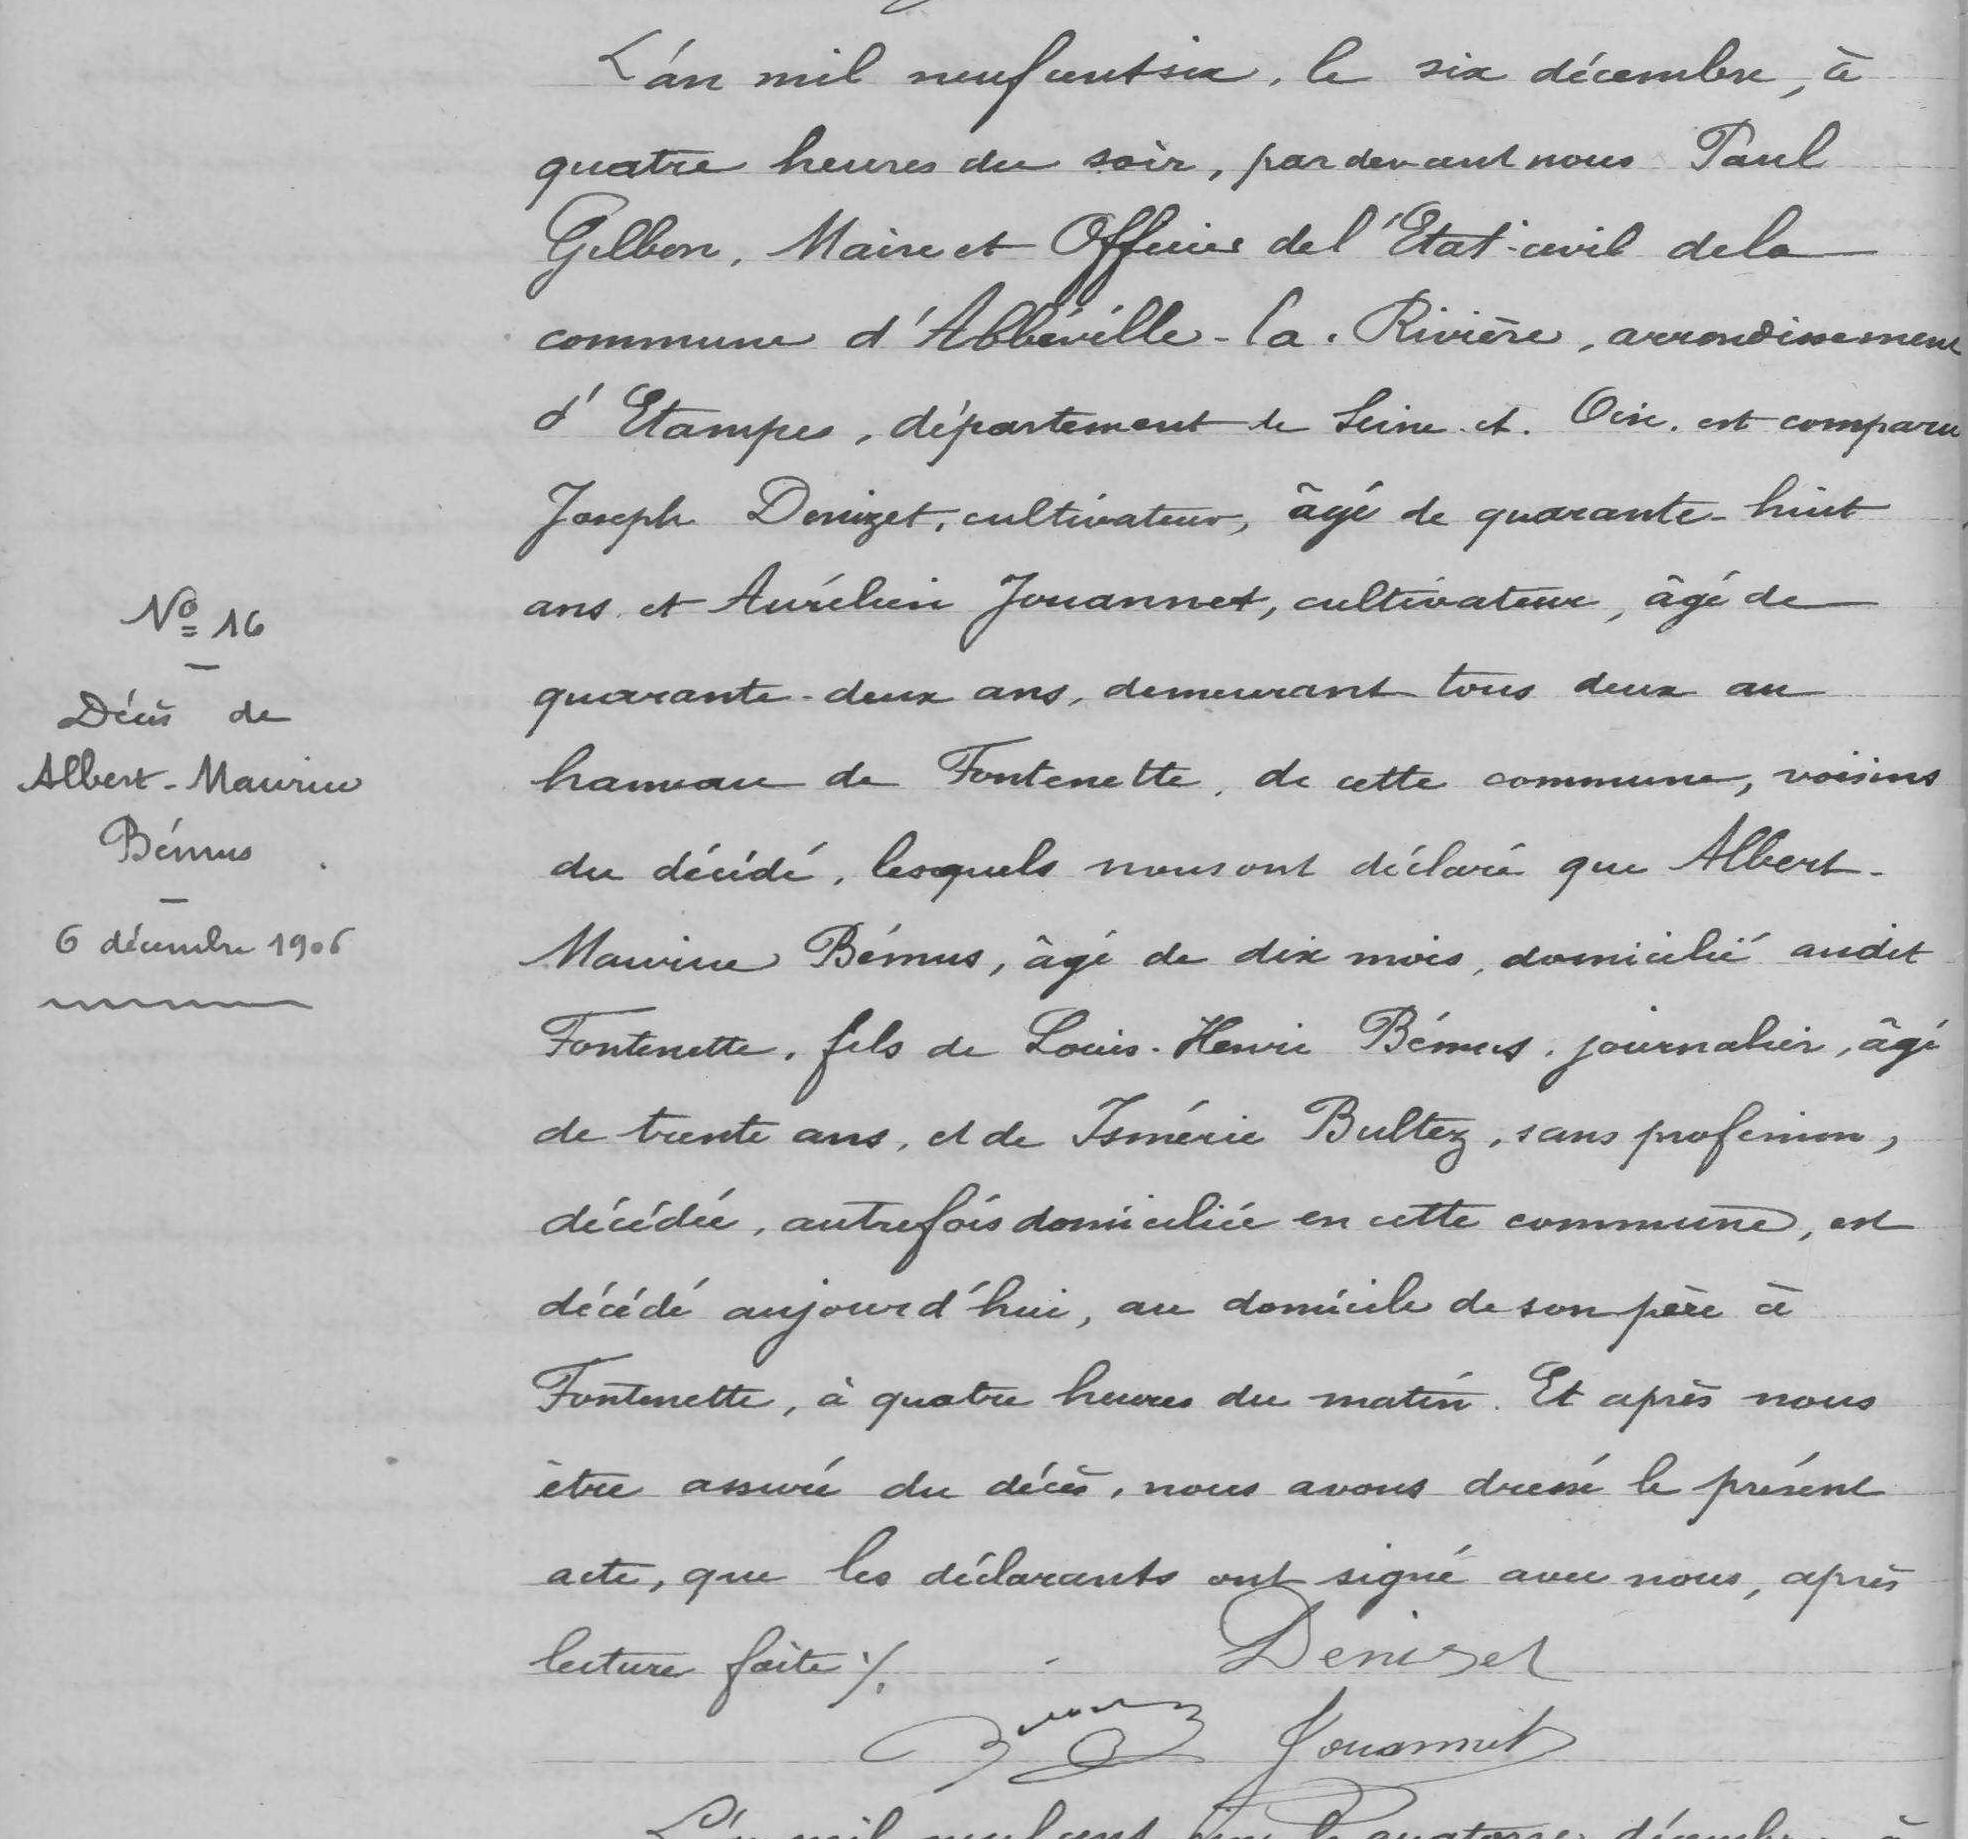 L'an mil neuf cent six, le six décembre, à
quatre heures du soir, par devant nous Paul
Gelbon, Maire et Officier de l'Etat-civil de la
commune d'Abbéville-la-Rivière, arrondissement
d'Etampes, département de Seine-et-Oise, est comparu
Joseph Denizet, cultivateur, âgé de quarante-huit
ans et Aurélien Jouannet, cultivateur, âgé de
quarante-deux ans, demeurant tous deux au
hameau de Fontenette, de cette commune, voisins
du décédé, lesquels nous ont déclaré que Albert-
Maurice Bémus, âgé de dix mois, domicilié audit
Fontenette, fils de Louis-Henri Bémus, journalier, âgé
de trente ans, et de Isménie Bultez, sans profession,
décédée, autrefois domiciliée en cette commune, est
décédé aujourd'hui, au domicile de son père à
Fontenette, à quatre heures du matin. Et après nous
être assuré du décès, nous avons dressé le présent
acte, que les déclarants ont signé avec nous, après
lecture faite ./.
Denizet
Jouannet
Nº 16
Décès de
Albert-Maurice
Bémus
6 décembre 1906
L'an mil neuf cent six le quatorze décembre à